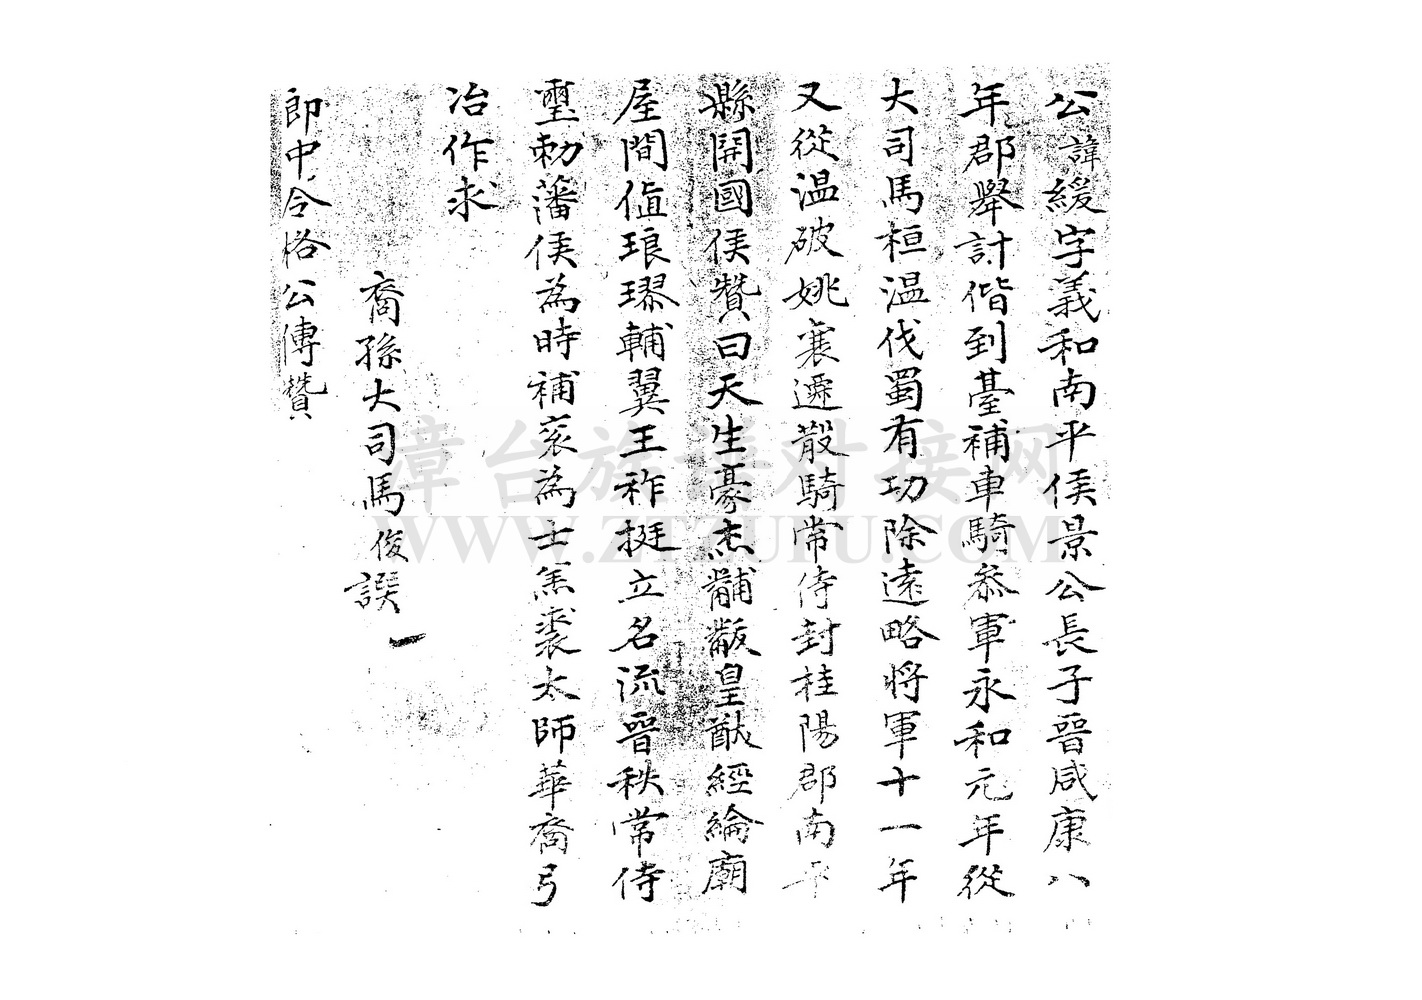 公諱緩字義和南平侯景公長子晉咸康八
年郡舉計偕到臺補車騎叅軍永和元年從
大司馬桓温伐蜀有功除遠略將軍十一年
又從温破姚襄遷散騎常侍封桂陽郡南平
縣開國侯贊曰天生豪杰黼黻皇猷經綸廟
屋間值琅璆輔翼王祚挺立名流晉秩常侍
璽勅藩侯為時補衮為士羔裘太師華裔弓
冶作求
裔孫大司馬俊譔
郎中令格公傳贊
章台族谱对接网
WWW.ZTZUPU.COM